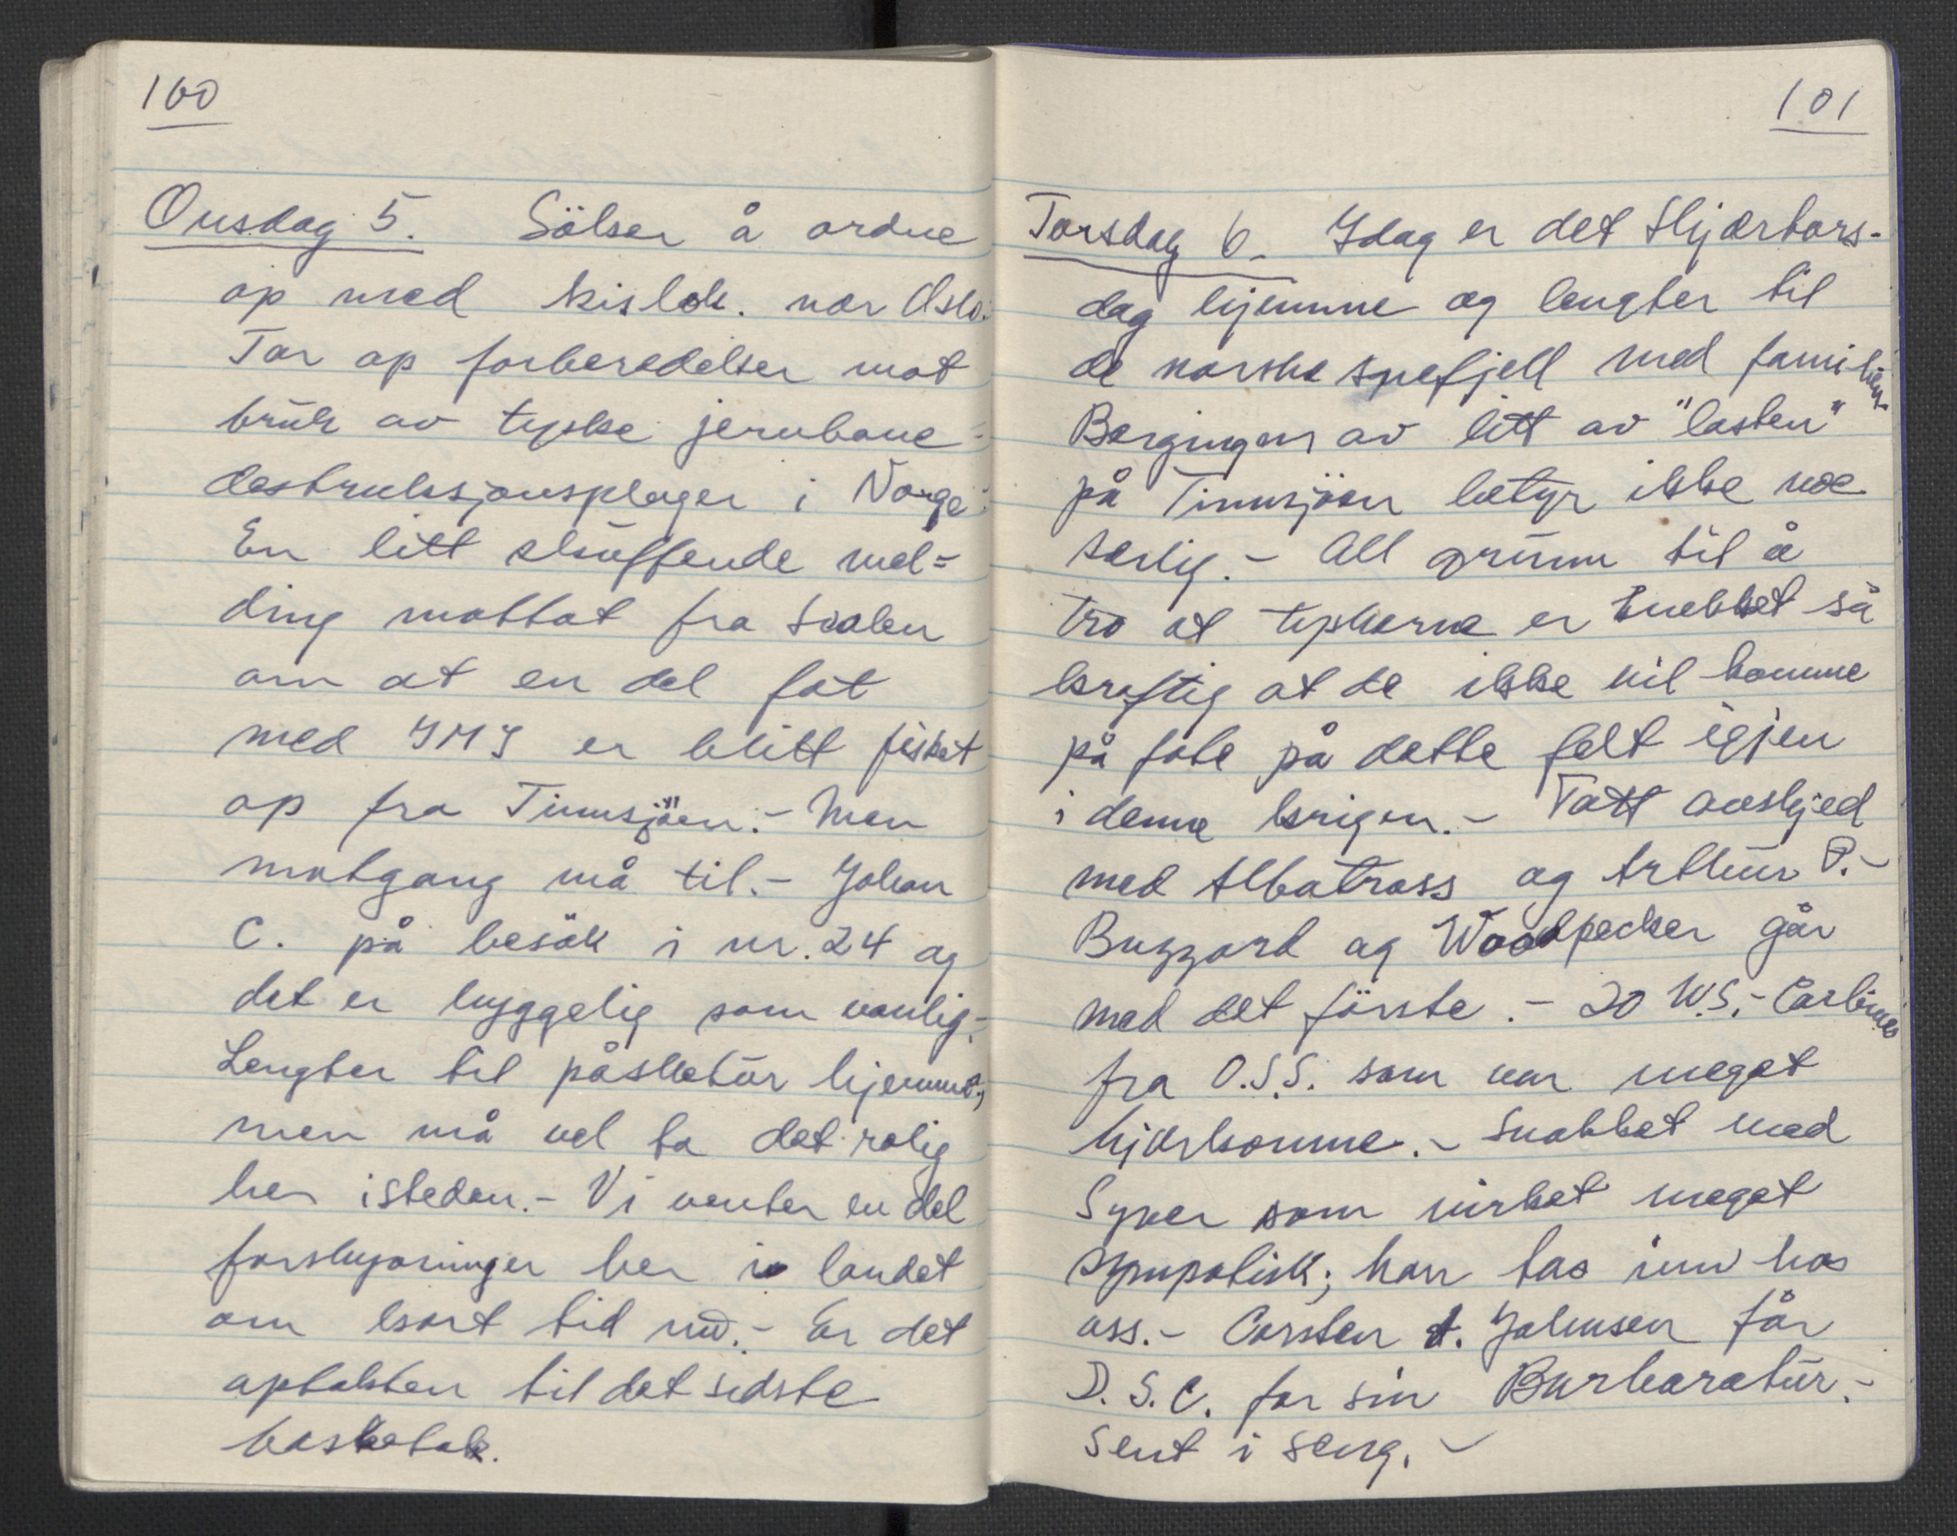 100
Onsdag 5. Sölser å ordne
op med kislok. nær Oslo.
Tar op forberedelser mot
bruk av tyske jernbane-
destruksjonsploger i Norge.
En litt skuffende mel=
ding mottat fra Svalen
om at en del fat
med IMI er blitt fisket
op fra Tinnsjöen.- Men
motgang må til.- Johan
C. på besök i nr. 24 og
det er hyggelig som vanlig.-
Lengter til påsketur hjemme,
men må vel ta det rolig
her isteden.- Vi venter en del
forskyvninger her i landet
om kort tid nu.- Er det
optakten til det sidste
basketak.
101
Torsdag 6. Idag er det Skjærtors-
dag hjemme og lengter til
de norske snefjell med familien.
Bergingen av litt av "lasten"
på Tinnsjöen betyr ikke noe
særlig.- All grunn til å
tro at tyskerne er knekket så
kraftig at de ikke vil komme
på fote på dette felt igjen
i denne krigen.- Tatt avskjed
med Albatross og Arthur P.-
Buzzard og Woodpecker går
med det förste.- 20 W.S.- Carbines
fra O.S.S. som var meget
hjælsomme.- Snakket med
Syver som virket meget
sympatisk; han tas inn hos
oss.- Carsten A. Johnsen får
D.S.C. for sin Barbaratur.-
Sent i seng.-